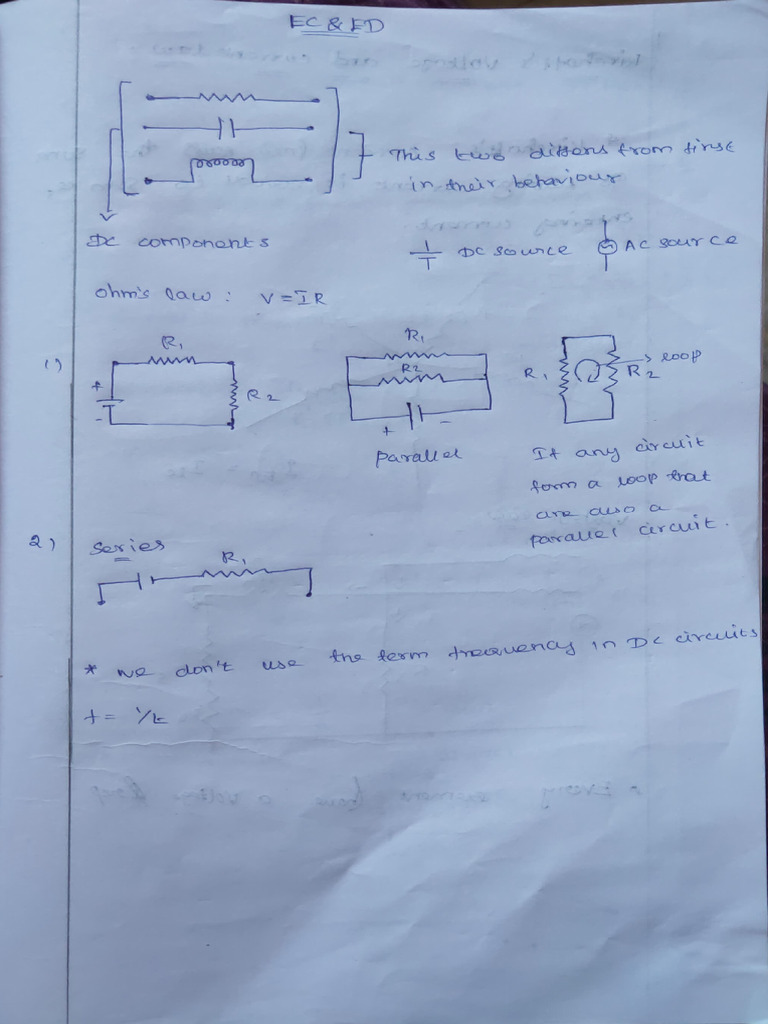 EC & ED
This two differs from first
in their behaviour
DC components
DC source
AC source
ohm's law : V = IR
1)
R1
+
-
R2
R1
R2
+ -
parallel
R1
R2
loop
If any circuit
form a loop that
are also a
parallel circuit.
2)
series
R1
* we don't use the term frequency in DC circuits